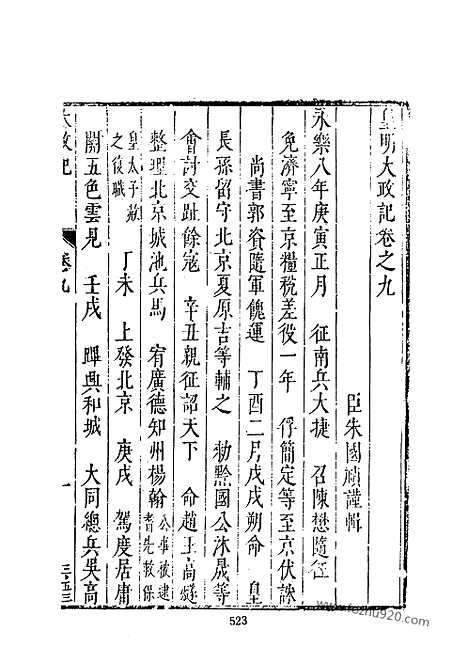 皇明大政記卷之九
臣朱國禎謹輯
永樂八年庚寅正月　征南兵大捷　召陳懋隨征
免濟寧至京糧稅差役一年　俘簡定等至京伏誅
尚書郭資隨軍餽運　丁酉二月戊戌朔命　皇
長孫留守北京夏原吉等輔之　勑黔國公沐晟等
會討交趾餘寇　辛丑親征詔天下　命趙王高燧
整理北京城池兵馬　宥廣德知州楊翰公事被逮耆老救保
皇太子救之復職　丁未　上發北京　庚戌　駕度居庸
關五色雲見　壬戌　蹕興和城　大同總兵吳高
大政記　卷九　一
523
www.fozhu920.com